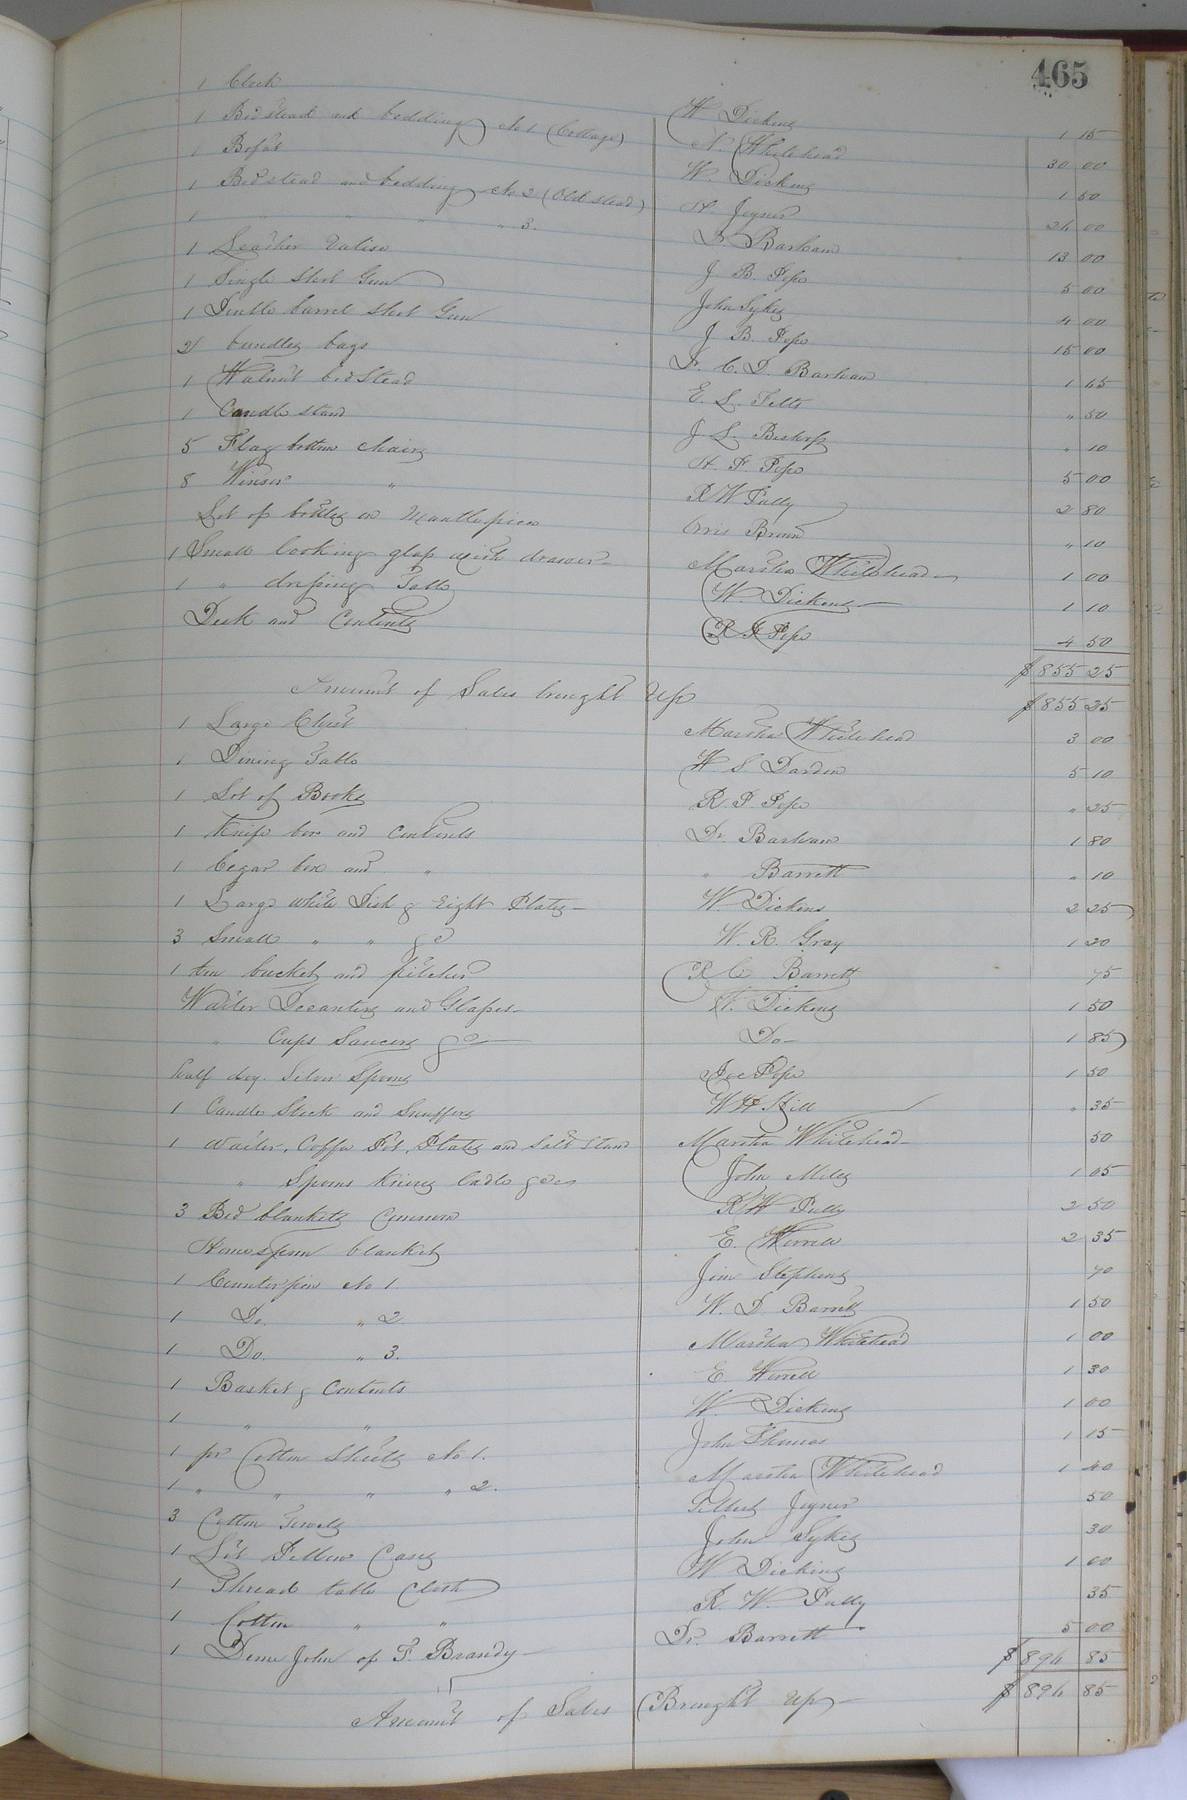 465
1 Clock W Dickens 1 15
1 Bedstead and bedding No 1 (Cottage) N. Whitehead 30 00
1 Bofat W. Dickens 1 50
1 Bedstead and bedding No 2 (Old stead) A Joyner 24 00
1 " " " " 3. Dr Barham 13 00
1 Leather Valise J. B. Pope 5 00
1 Single Shot Gun John Sykes 4 00
1 Double barrel Shot Gun J B. Pope 15 00
2 bundles bags Dr. C. D. Barham 1 45
1 Walnut bedStead E. L. Felts " 50
1 Candle stand J L. Bishop " 10
5 Flag bottom chairs H. F. Pope 5 00
8 Winsor " R W Pully 2 80
Lot of bottles on Mantlepiece Orris Brown " 10
1 Small looking glass with drawer Martha Whitehead 1 00
1 " dressing Table W. Dickens 1 10
Desk and Contents R H Pope 4 50
$ 855 25
Amount of Sales brought Up $ 855 25
1 Large Chest Martha Whitehead 3 00
1 Dining Table W S. Darden 5 10
1 Lot of Books R. P. Pope " 25
1 Knife box and Contents Dr. Barham 1 80
1 Cegar box and " " Barrett " 10
1 Large White Dish & Eight Plates W. Dickens 2 25
3 Small " " &c W. R. Gray 1 20
1 tin bucket and pitcher R C Barrett 75
Waiter Decanters and Glasses W. Dickens 1 50
" Cups Saucers &c Do 1 85
half doz. Silver Spoons Joe Pope 1 50
1 Candle Stick and Snuffers W H Hill " 35
1 Waiter, Coffee Pot, Plates and Salt Stand Martha Whitehead 50
" Spoons Knives ladle &c John Miles 1 05
3 Bed blankets Common R W Pully 2 50
Homespun blankets E. Worrell 2 35
1 Counterpin No 1. Jim Stephens 70
1 Do. " 2 W. D Barrett 1 50
1 Do. " 3. Martha Whitehead 1 00
1 Basket & Contents E Worrell 1 30
1 " " W. Dickens 1 00
1 pr Cotton Sheets No 1. John Thomas 1 15
1 " " " " 2. Martha Whitehead 1 40
3 Cotton Towels Joyner 50
1 Lot Pillow Cases John Sykes 30
1 Thread table Cloth W Dickens 1 00
1 Cotton " " R. W. Pully 35
1 Demi John of P. Brandy Dr. Barrett 5 00
$ 894 85
Amount of Sales Brought Up $ 894 85